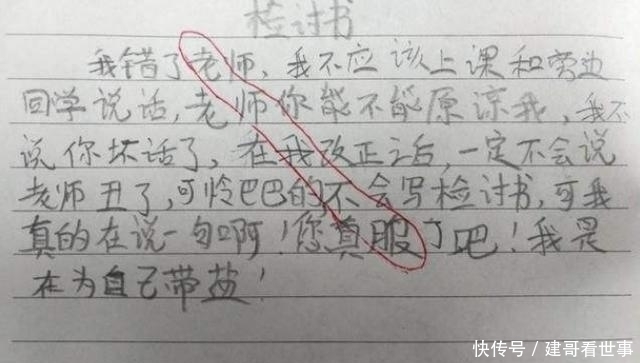 检讨书
我错了老师，我不应该上课和旁边
同学说话，老师你能不能原谅我，我不
说你坏话了，在我改正之后，一定不会说
老师丑了，可怜巴巴的不会写检讨书，可我
真的在说一句啊！您真服了吧！我是
在为自己带盐！
快传号 / 建哥看世事